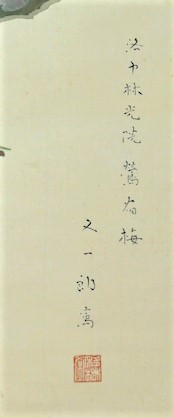 洛中林光院鶯宿梅
文一郎寫